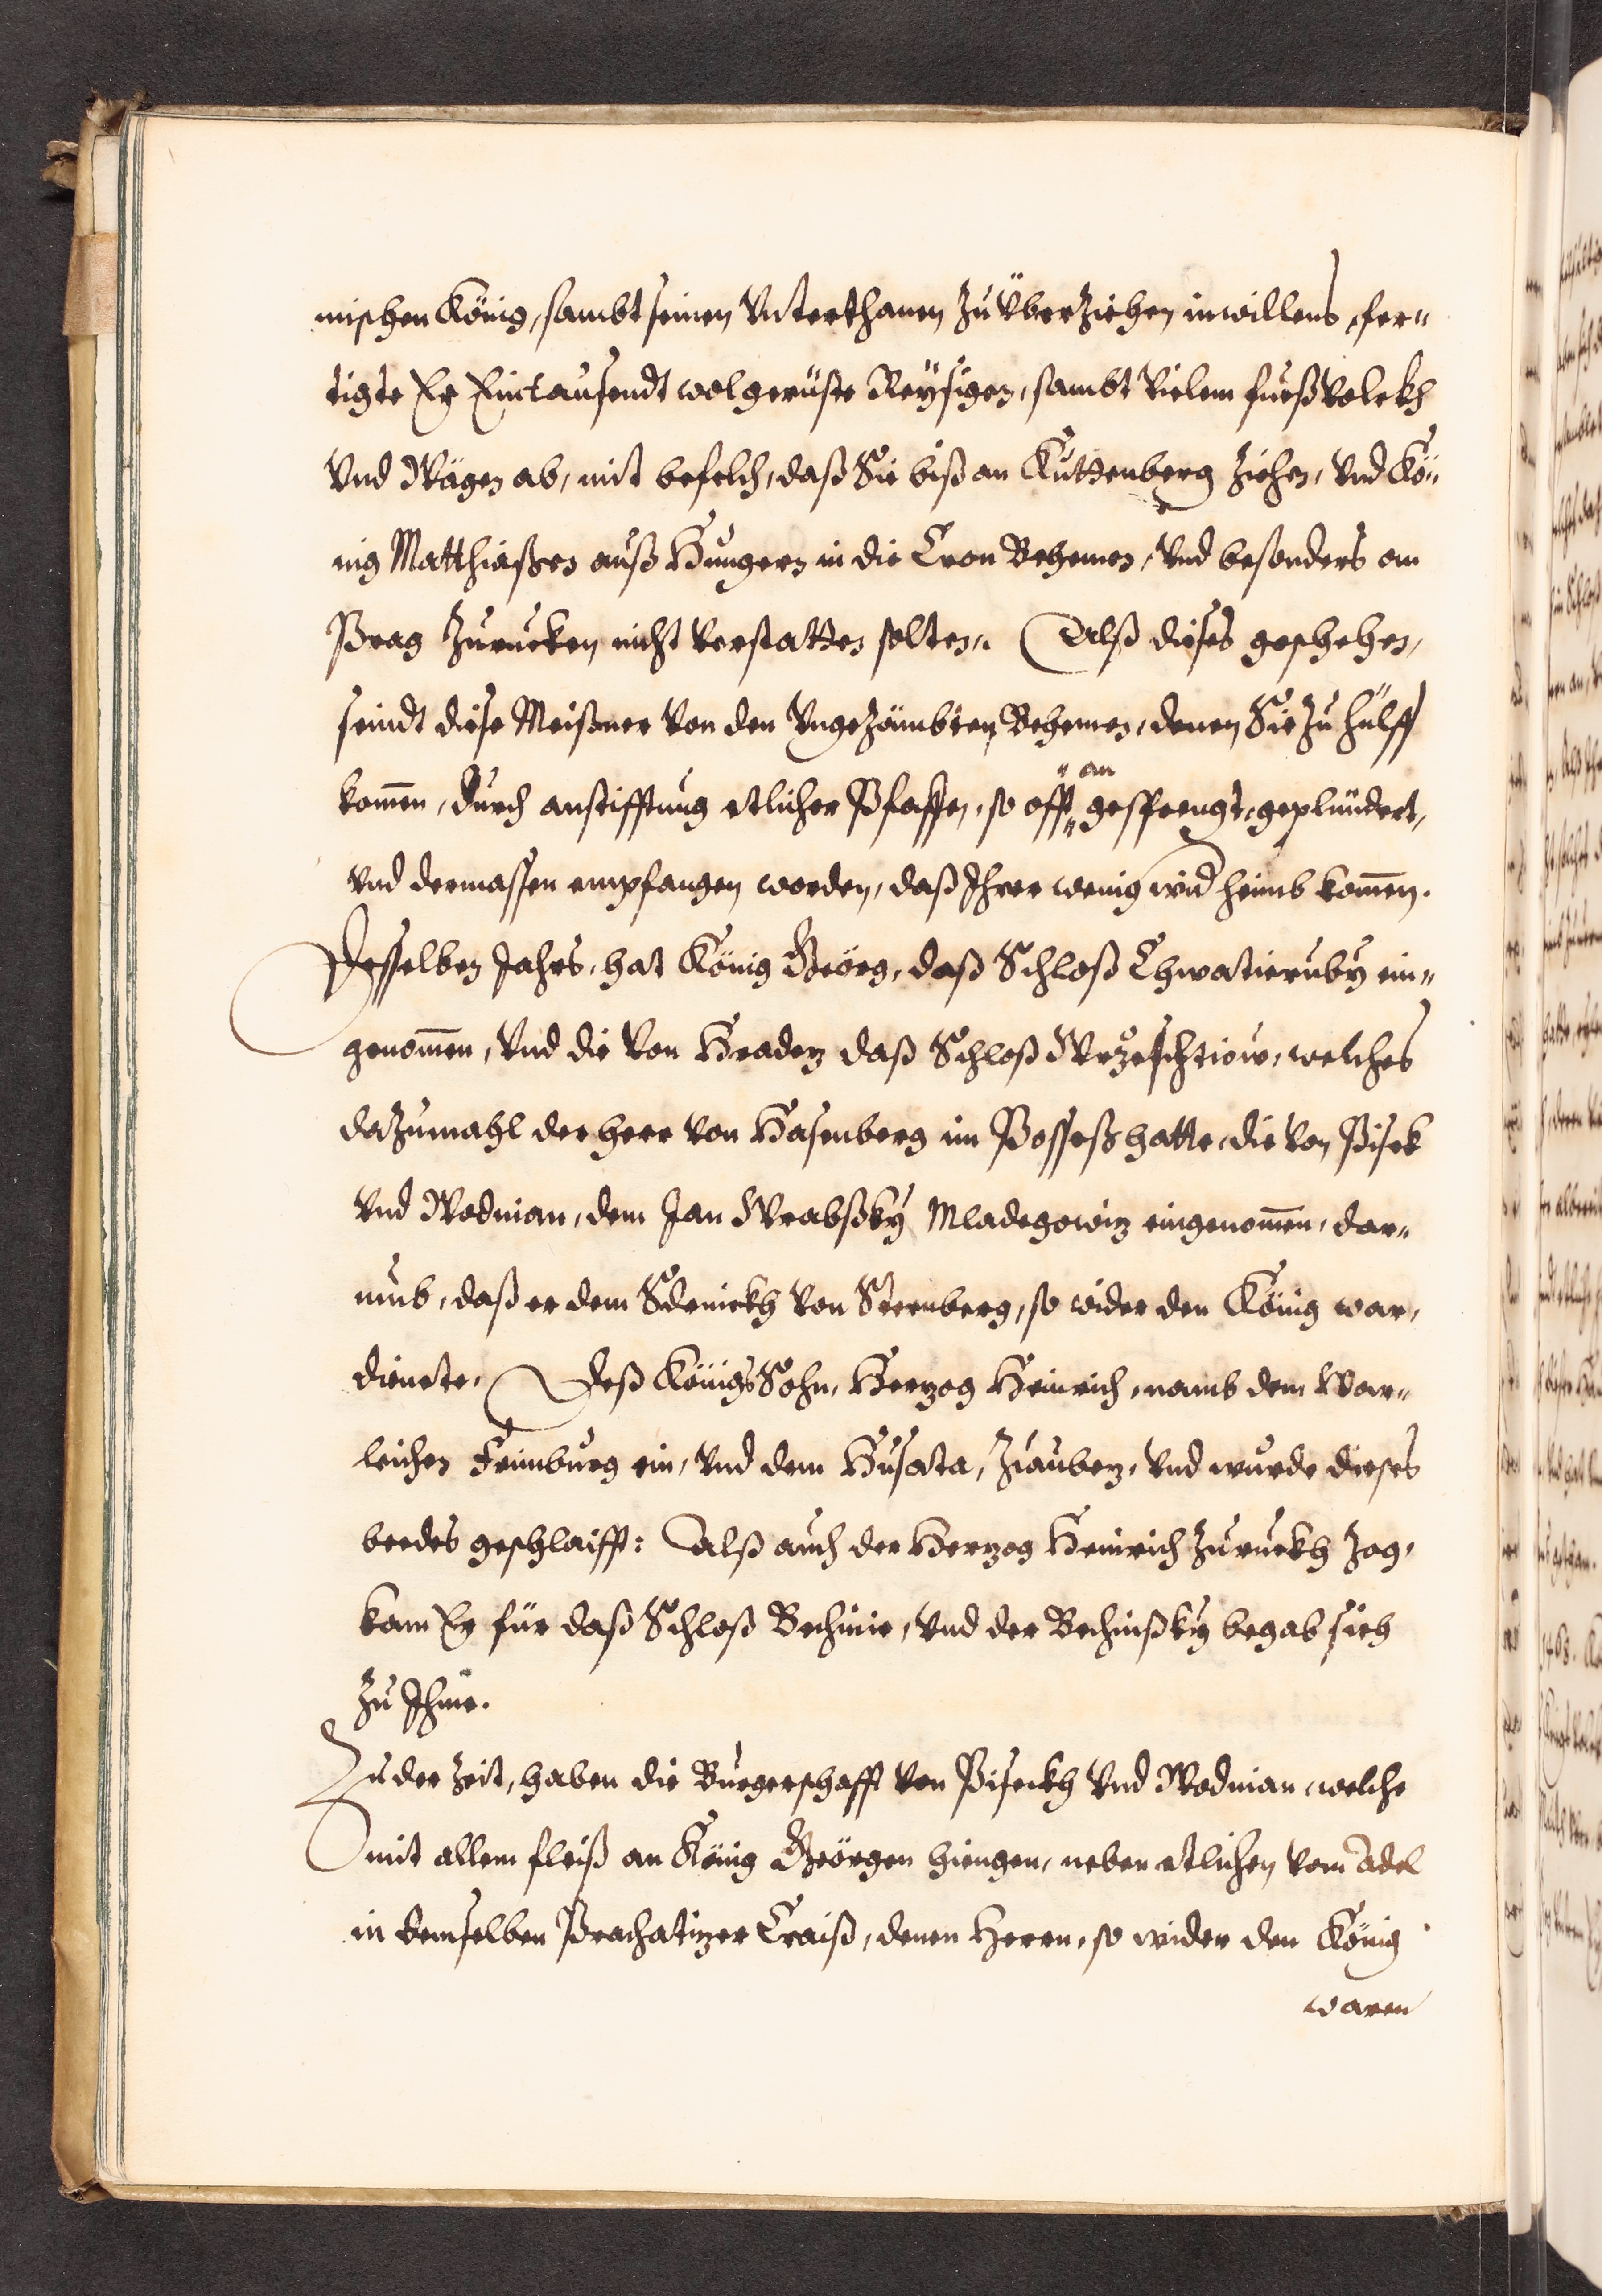 mischen König, sambt seinen Vnterthanen zu überziehen inwillens, fer"
tigte Er Eintausendt wolgerüste Reysigen, sambt Vielem fueßVolckh
Vnd Wägen ab, mit befelch, daß Sie biß an Kuttenberg ziehen, Vnd Kö"
nig Matthiaßen auß Hungern in die Cron Behemen, Vnd besonders on
Prag zurucken nicht Verstatten solten. Alß dieses geschehen,
seindt diese Meißner Von den VngeZämbten Behemen, denen Sie Zu hülff
kom̃en, durch anstifftung etlicher Pfaffen, so offt " an " gesprengt, geplündert,
vnd dermassen empfangen worden, daß Ihrer wenig wid heimb kom̃en.
Desselben Jahrs, hat König Geörg, daß Schloß Chwatieruby ein"
genom̃en, Vnd die Von Gradetz daß Schloß Wrzeschtiow, welches
daZumahl der herr Von Hasenberg im Possess hatte, die Von Pisek
Vnd Wodnian, dem Jan Wrabßky Mladegowitz eingenom̃en, dar"
umb, daß er dem Sdenickh Von Sternberg, so wider den König war,
dienete. Deß Königs Sohn, Hertzog Heinrich, namb dem War"
leichen Freimburg ein, Vnd dem Husata, Ziaubetz, Vnd wurde dieses
beedes geschlaifft: Alß auch der Hertzog Heinrich Zuruckh Zog,
kam Er für daß Schloß Bechinie, Vnd der Bechinßky begab sich
Zu Ihme.
Zu der Zeit, haben die Burgerschafft Von Piseckh Vnd Wodnian, welche
mit allem fleiß an König Geörgen hiengen, neben etlichen Vom Adel
in demselben Prachatitzer Craiß, denen Herrn, so wider den König
waren